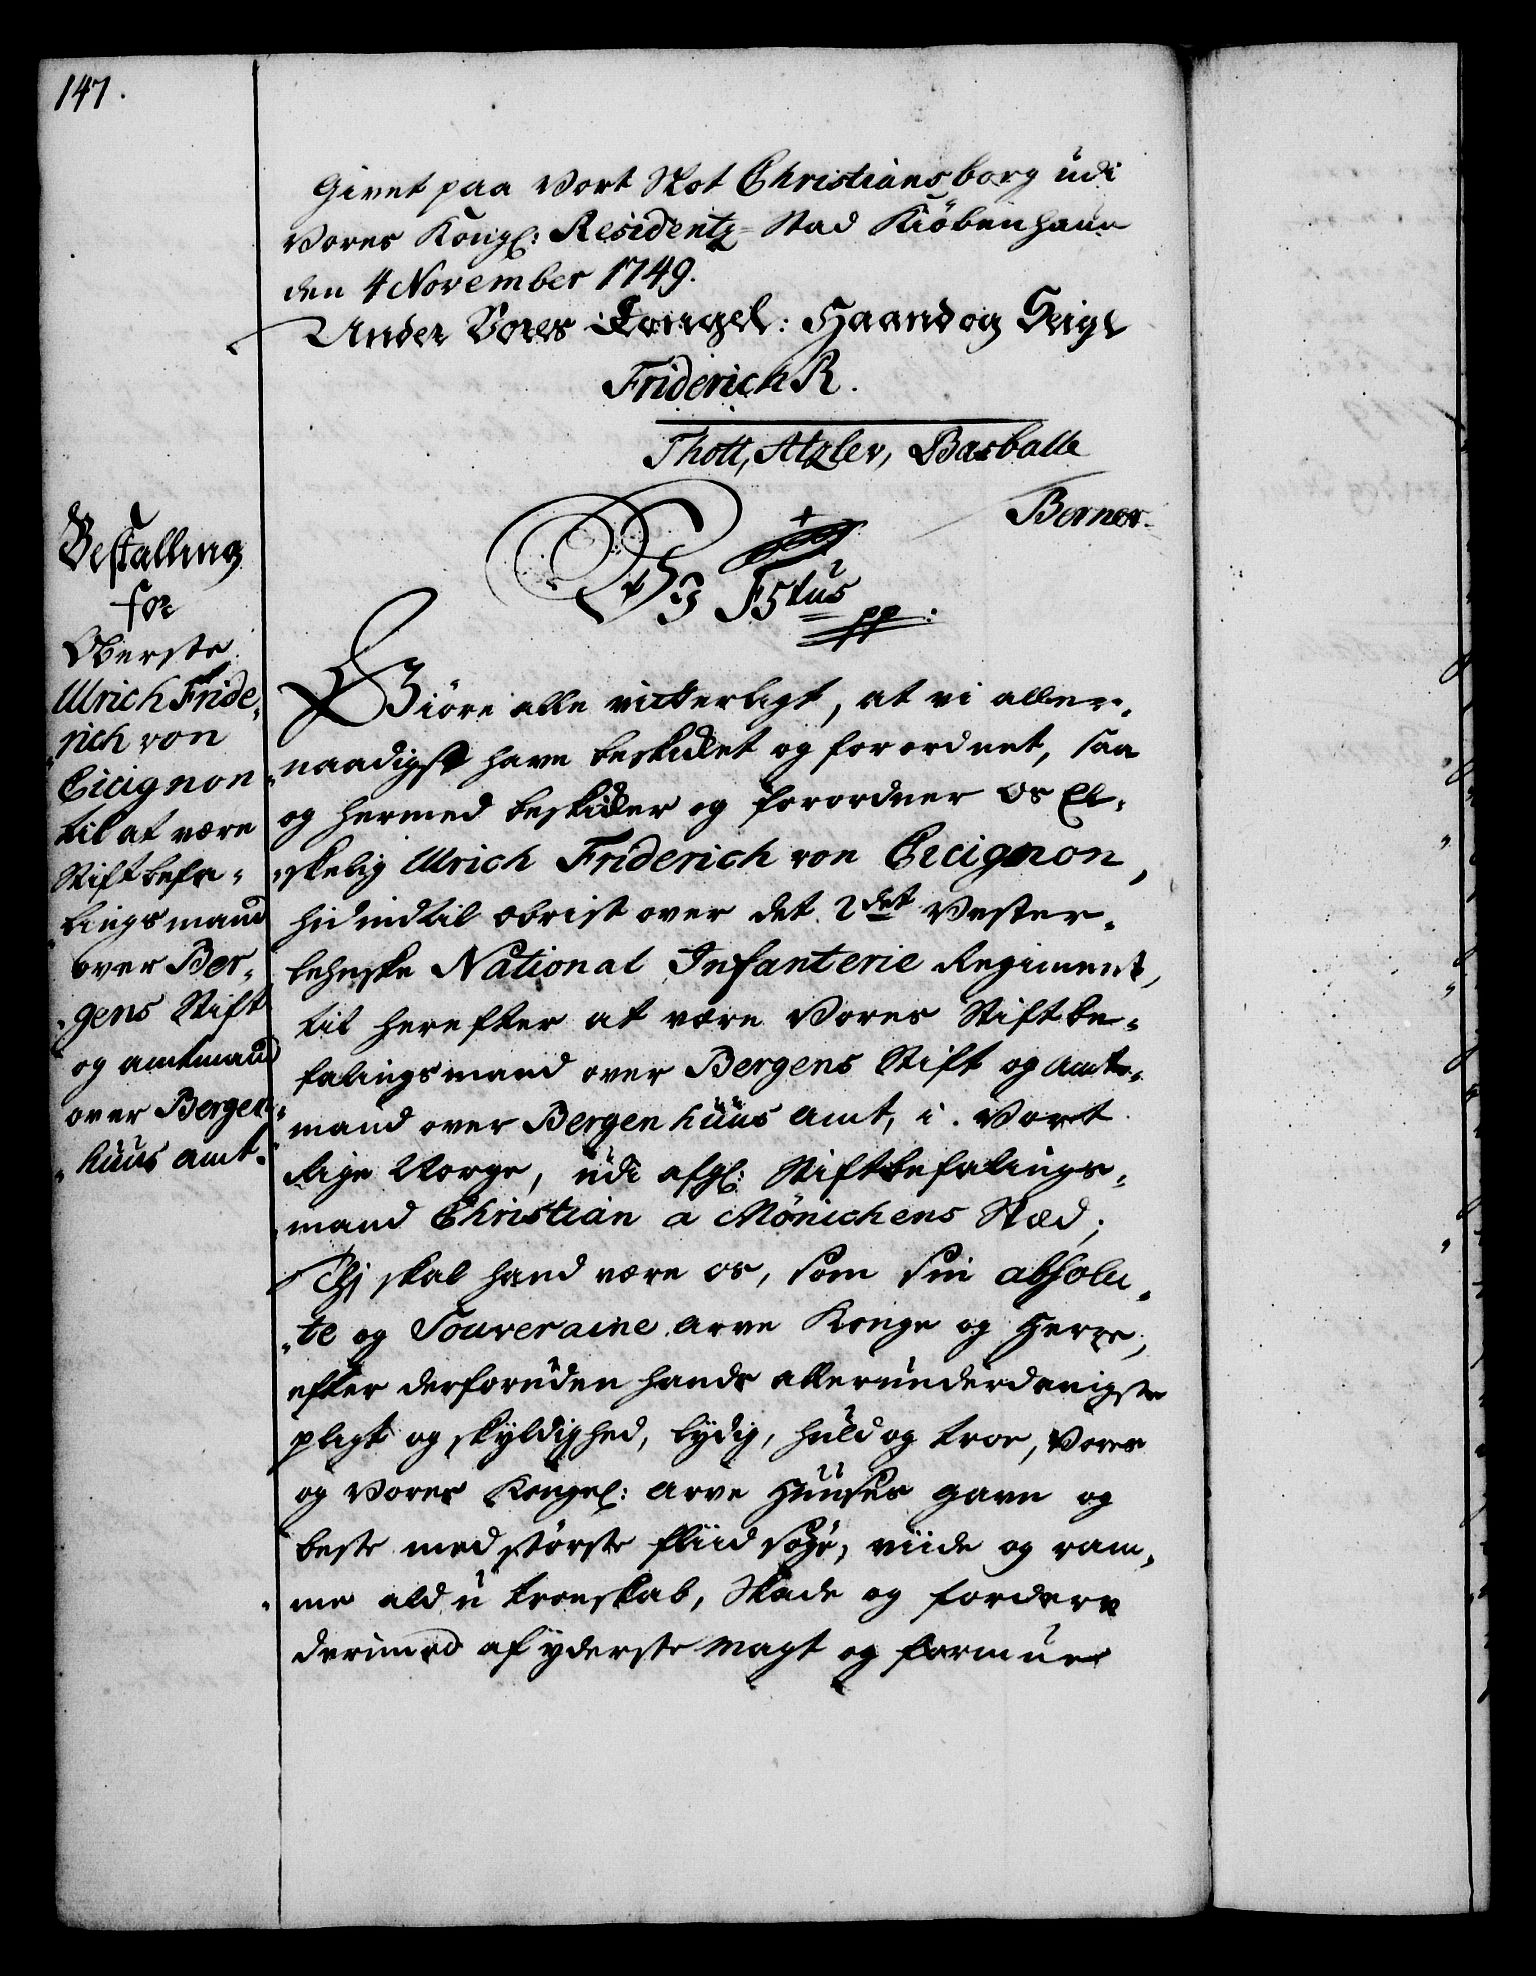 147.
Givet paa Vort Slot Christiansborg udi
Vores Kongl: Residentz-Stad Kiöbenhaun
den 4 November 1749.
Under Vores Kongel: Haand og Seigl
Friderich R.
Thott, Atzlev, Basballe
Berner.
Bestalling
for
Oberste
Ulrich Fride-
rich von
Cicignon
til at være
Stiftbefa-
lingsmand
over Ber-
gens Stift
og amtmand
over Bergen-
huus amt.
Vg F5tus
pp:
Giöre alle vitterligt, at vi aller-
naadigst have beskikket og forordnet, saa
og hermed beskikker og forordner os El-
skelig Ulrich Friderich von Cicignon,
hidindtil obrist over det 2det Vester-
lehnske National Infanterie Regiment,
til herefter at være Vores Stiftbe-
falingsmand over Bergens Stift og amt-
mand over Bergenhuus amt, i Vort
Rige Norge, udi afgl: Stiftbefalings-
mand Christian a Mönichens Sted;
Thj skal hand være os, som sin absolu-
te og Souveraine arve Konge og Herre,
efter derforuden hands allerunderdanigste
pligt og skyldighed, lydig, huld og troe, Vores
og Vores Kongel: arve Huuses gavn og
beste med störste fliid söge, viide og ram-
me ald u troeskab, Skade og fordærv
derimod af yderste Magt og formue